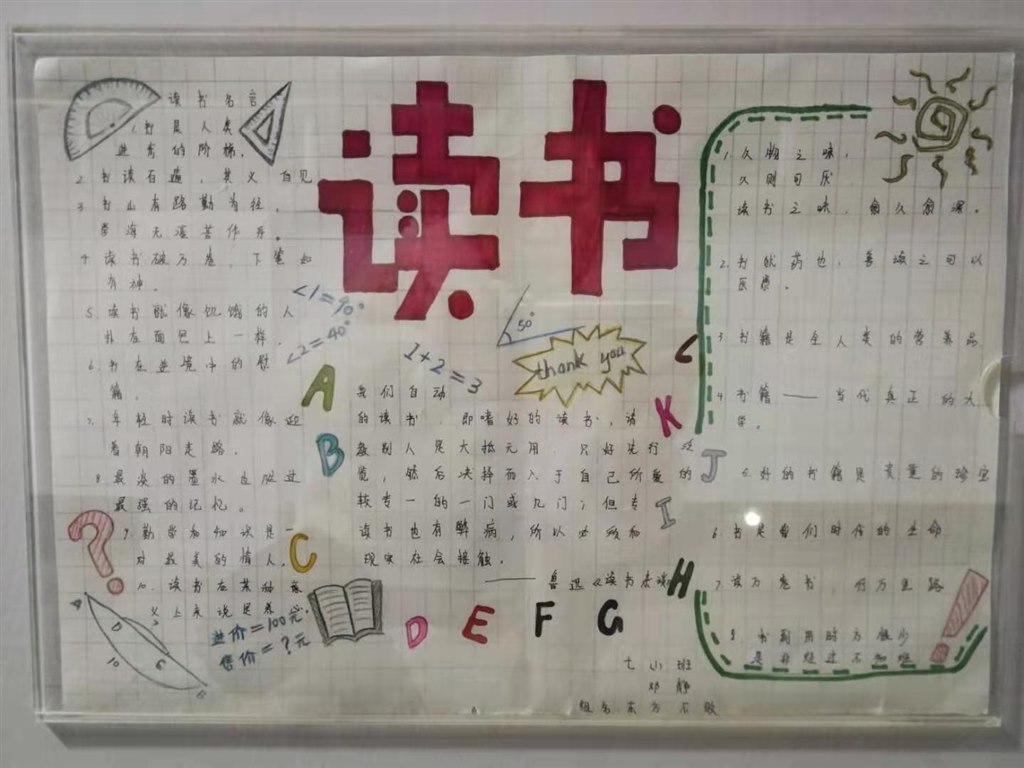 读书
读书名言
1.书是人类
进步的阶梯。
2 书读百遍，其义自见
3 书山有路勤为径，
学海无涯苦作舟。
4 读书破万卷，下笔如
有神。
5 读书就像饥饿的人
扑在面包上一样。
6 书在逆境中的慰
籍。
7. 年轻时读书就像迎
着朝阳走路。
8 最淡的墨水也胜过
最强的记忆。
9 勤学和知识是一
对最美的情人。
10. 读书在某种意
义上来说是
进价=100元
售价=?元
∠1=90°
∠2=40°
1+2=3
50°
thank you
我们自动
的读书，即嗜好的读书，请
教别人是大抵无用，只好先行泛
览，然后决择而入于自己所爱的
较专一的一门或几门；但专
读书也有弊病，所以必须和
现实社会接触。
——鲁迅《读书杂谈
A
B
C
D
E
F
G
H
I
J
K
L
1. 久物之味，
久则可厌
读书之味，愈久愈深。
2. 书犹药也，善读之可以
医愚。
3 书籍是全人类的营养品
4 书籍——当代真正的大
学。
5. 好的书籍是贵重的珍宝
6 书是我们时代的生命
7. 读万卷书，行万里路
8. 书到用时方恨少
是非经过不知难
七 小 班
邓静
组名:东方不败